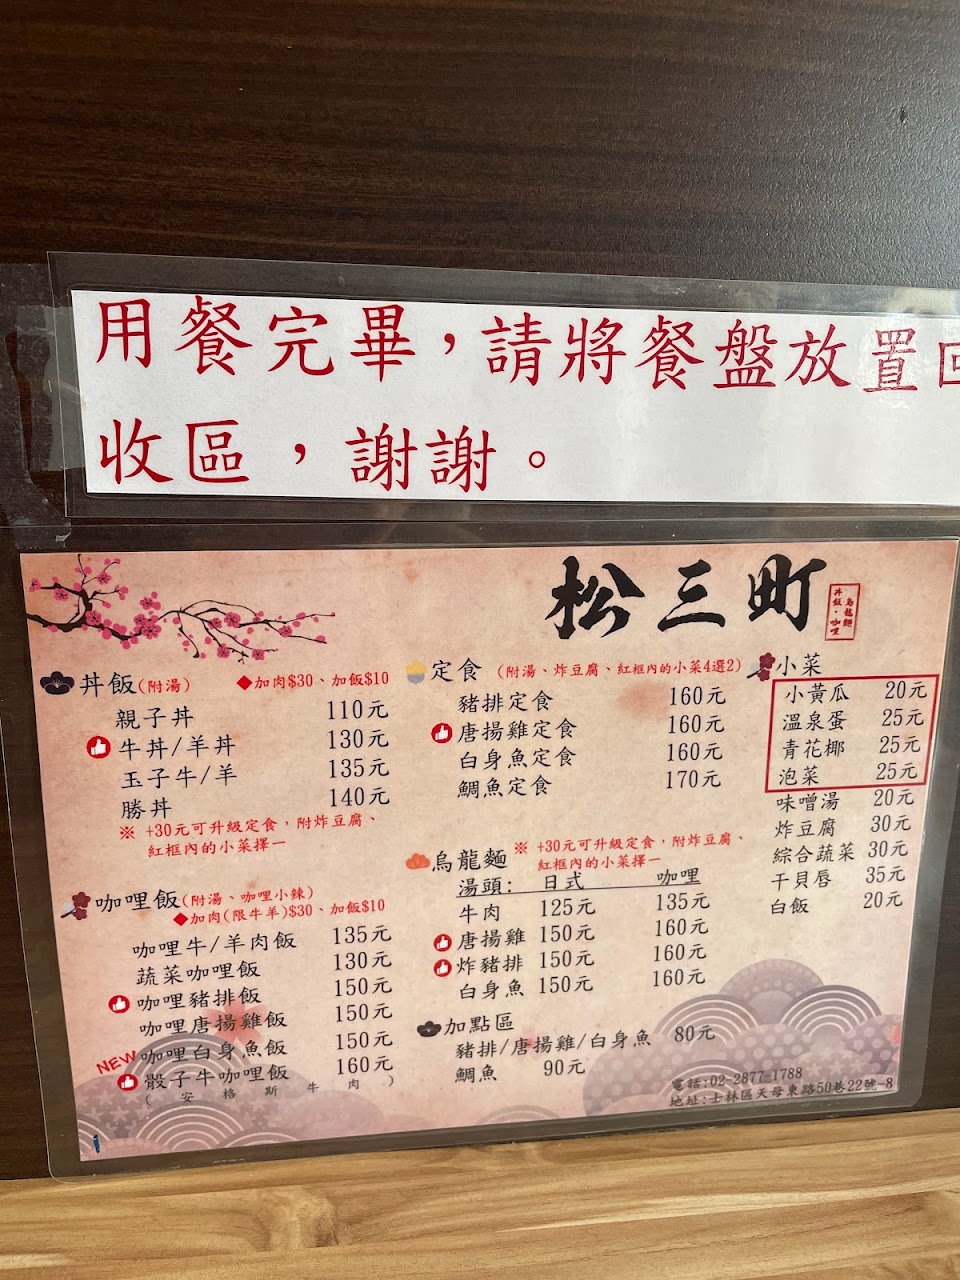 用餐完畢，請將餐盤放置回
收區，謝謝。
松三町
烏龍麵
丼飯·咖哩
丼飯(附湯) ◆加肉$30、加飯$10
親子丼 110元
牛丼/羊丼 130元
玉子牛/羊 135元
勝丼 140元
※ +30元可升級定食，附炸豆腐、
紅框內的小菜擇一
咖哩飯(附湯、咖哩小辣)
◆加肉(限牛羊)$30、加飯$10
咖哩牛/羊肉飯 135元
蔬菜咖哩飯 130元
咖哩豬排飯 150元
咖哩唐揚雞飯 150元
咖哩白身魚飯 150元
NEW 骰子牛咖哩飯 160元
(安格斯牛肉)
定食 (附湯、炸豆腐、紅框內的小菜4選2)
豬排定食 160元
唐揚雞定食 160元
白身魚定食 160元
鯛魚定食 170元
烏龍麵 ※ +30元可升級定食，附炸豆腐、
紅框內的小菜擇一
湯頭: 日式 咖哩
牛肉 125元 135元
唐揚雞 150元 160元
炸豬排 150元 160元
白身魚 150元 160元
加點區
豬排/唐揚雞/白身魚 80元
鯛魚 90元
小菜
小黃瓜 20元
溫泉蛋 25元
青花椰 25元
泡菜 25元
味噌湯 20元
炸豆腐 30元
綜合蔬菜 30元
干貝唇 35元
白飯 20元
電話:02-2877-1788
地址:士林區天母東路50巷22號-8